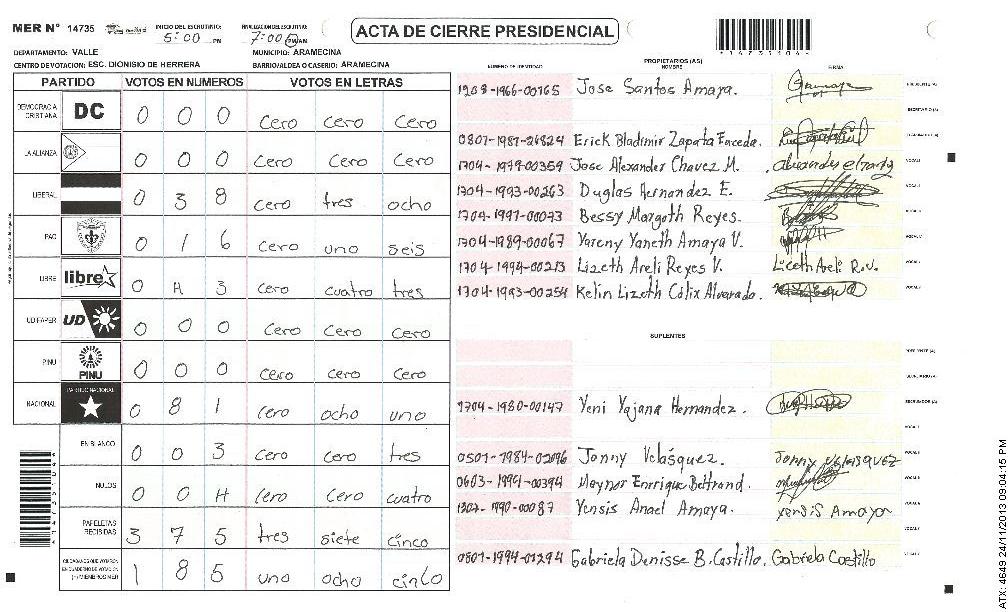 MER Nº 14735 INICIO DEL ESCRUTINIO: 5:00 PM FINALIZACION DEL ESCRUTINIO: 7:00 PM/AM
ACTA DE CIERRE PRESIDENCIAL
DEPARTAMENTO: VALLE MUNICIPIO: ARAMECINA
CENTRO DE VOTACION: ESC. DIONISIO DE HERRERA BARRIO/ALDEA O CASERIO: ARAMECINA
PARTIDO VOTOS EN NUMEROS VOTOS EN LETRAS
DEMOCRACIA CRISTIANA DC 0 0 0 Cero Cero Cero
LA ALIANZA 0 0 0 Cero Cero Cero
LIBERAL 0 3 8 Cero tres ocho
PAC 0 1 6 Cero uno seis
LIBRE libre 0 4 3 Cero cuatro tres
UD FAPER UD 0 0 0 Cero Cero Cero
PINU PINU 0 0 0 Cero Cero Cero
NACIONAL PARTIDO NACIONAL 0 8 1 Cero ocho uno
EN BLANCO 0 0 3 Cero Cero tres
NULOS 0 0 4 Cero Cero cuatro
PAPELETAS RECIBIDAS 3 7 5 tres siete cinco
CIUDADANOS QUE VOTARON EN CUADERNO DE VOTACION (+) MIEMBROS MER 1 8 5 uno ocho cinco
PROPIETARIOS (AS)
NUMERO DE IDENTIDAD NOMBRE FIRMA
1709-1966-00165 Jose Santos Amaya. PRESIDENTE (A)
SECRETARIO (A)
0801-1987-26824 Erick Bladimir Zapata Faceda. ESCRUTADOR (A)
1704-1979-00359 Jose Alexander Chavez M. VOCAL I
1704-1993-00263 Duglas Hernandez E. VOCAL II
1704-1997-00073 Bessy Margoth Reyes. VOCAL III
1704-1989-00067 Yoreny Yaneth Amaya V. VOCAL IV
1704-1994-00213 Lizeth Areli Reyes V. Liceth Areli R.V. VOCAL V
1704-1993-00254 Kelin Lizeth Cálix Alvarado.
SUPLENTES
PRESIDENTE (A)
SECRETARIO (A)
1704-1980-00147 Yeni Yajana Hernandez. ESCRUTADOR (A)
VOCAL I
0501-1984-02096 Jonny Velásquez. Jonny Velasquez
0603-1991-00394 Maynor Enrrique Beltrand.
1707-1990-00087 Yensis Anael Amaya. Yensis Amaya
0801-1994-01294 Gabriela Denisse B. Castillo. Gabriela Castillo
ATX: 4649 24/11/2013 09:04:15 PM